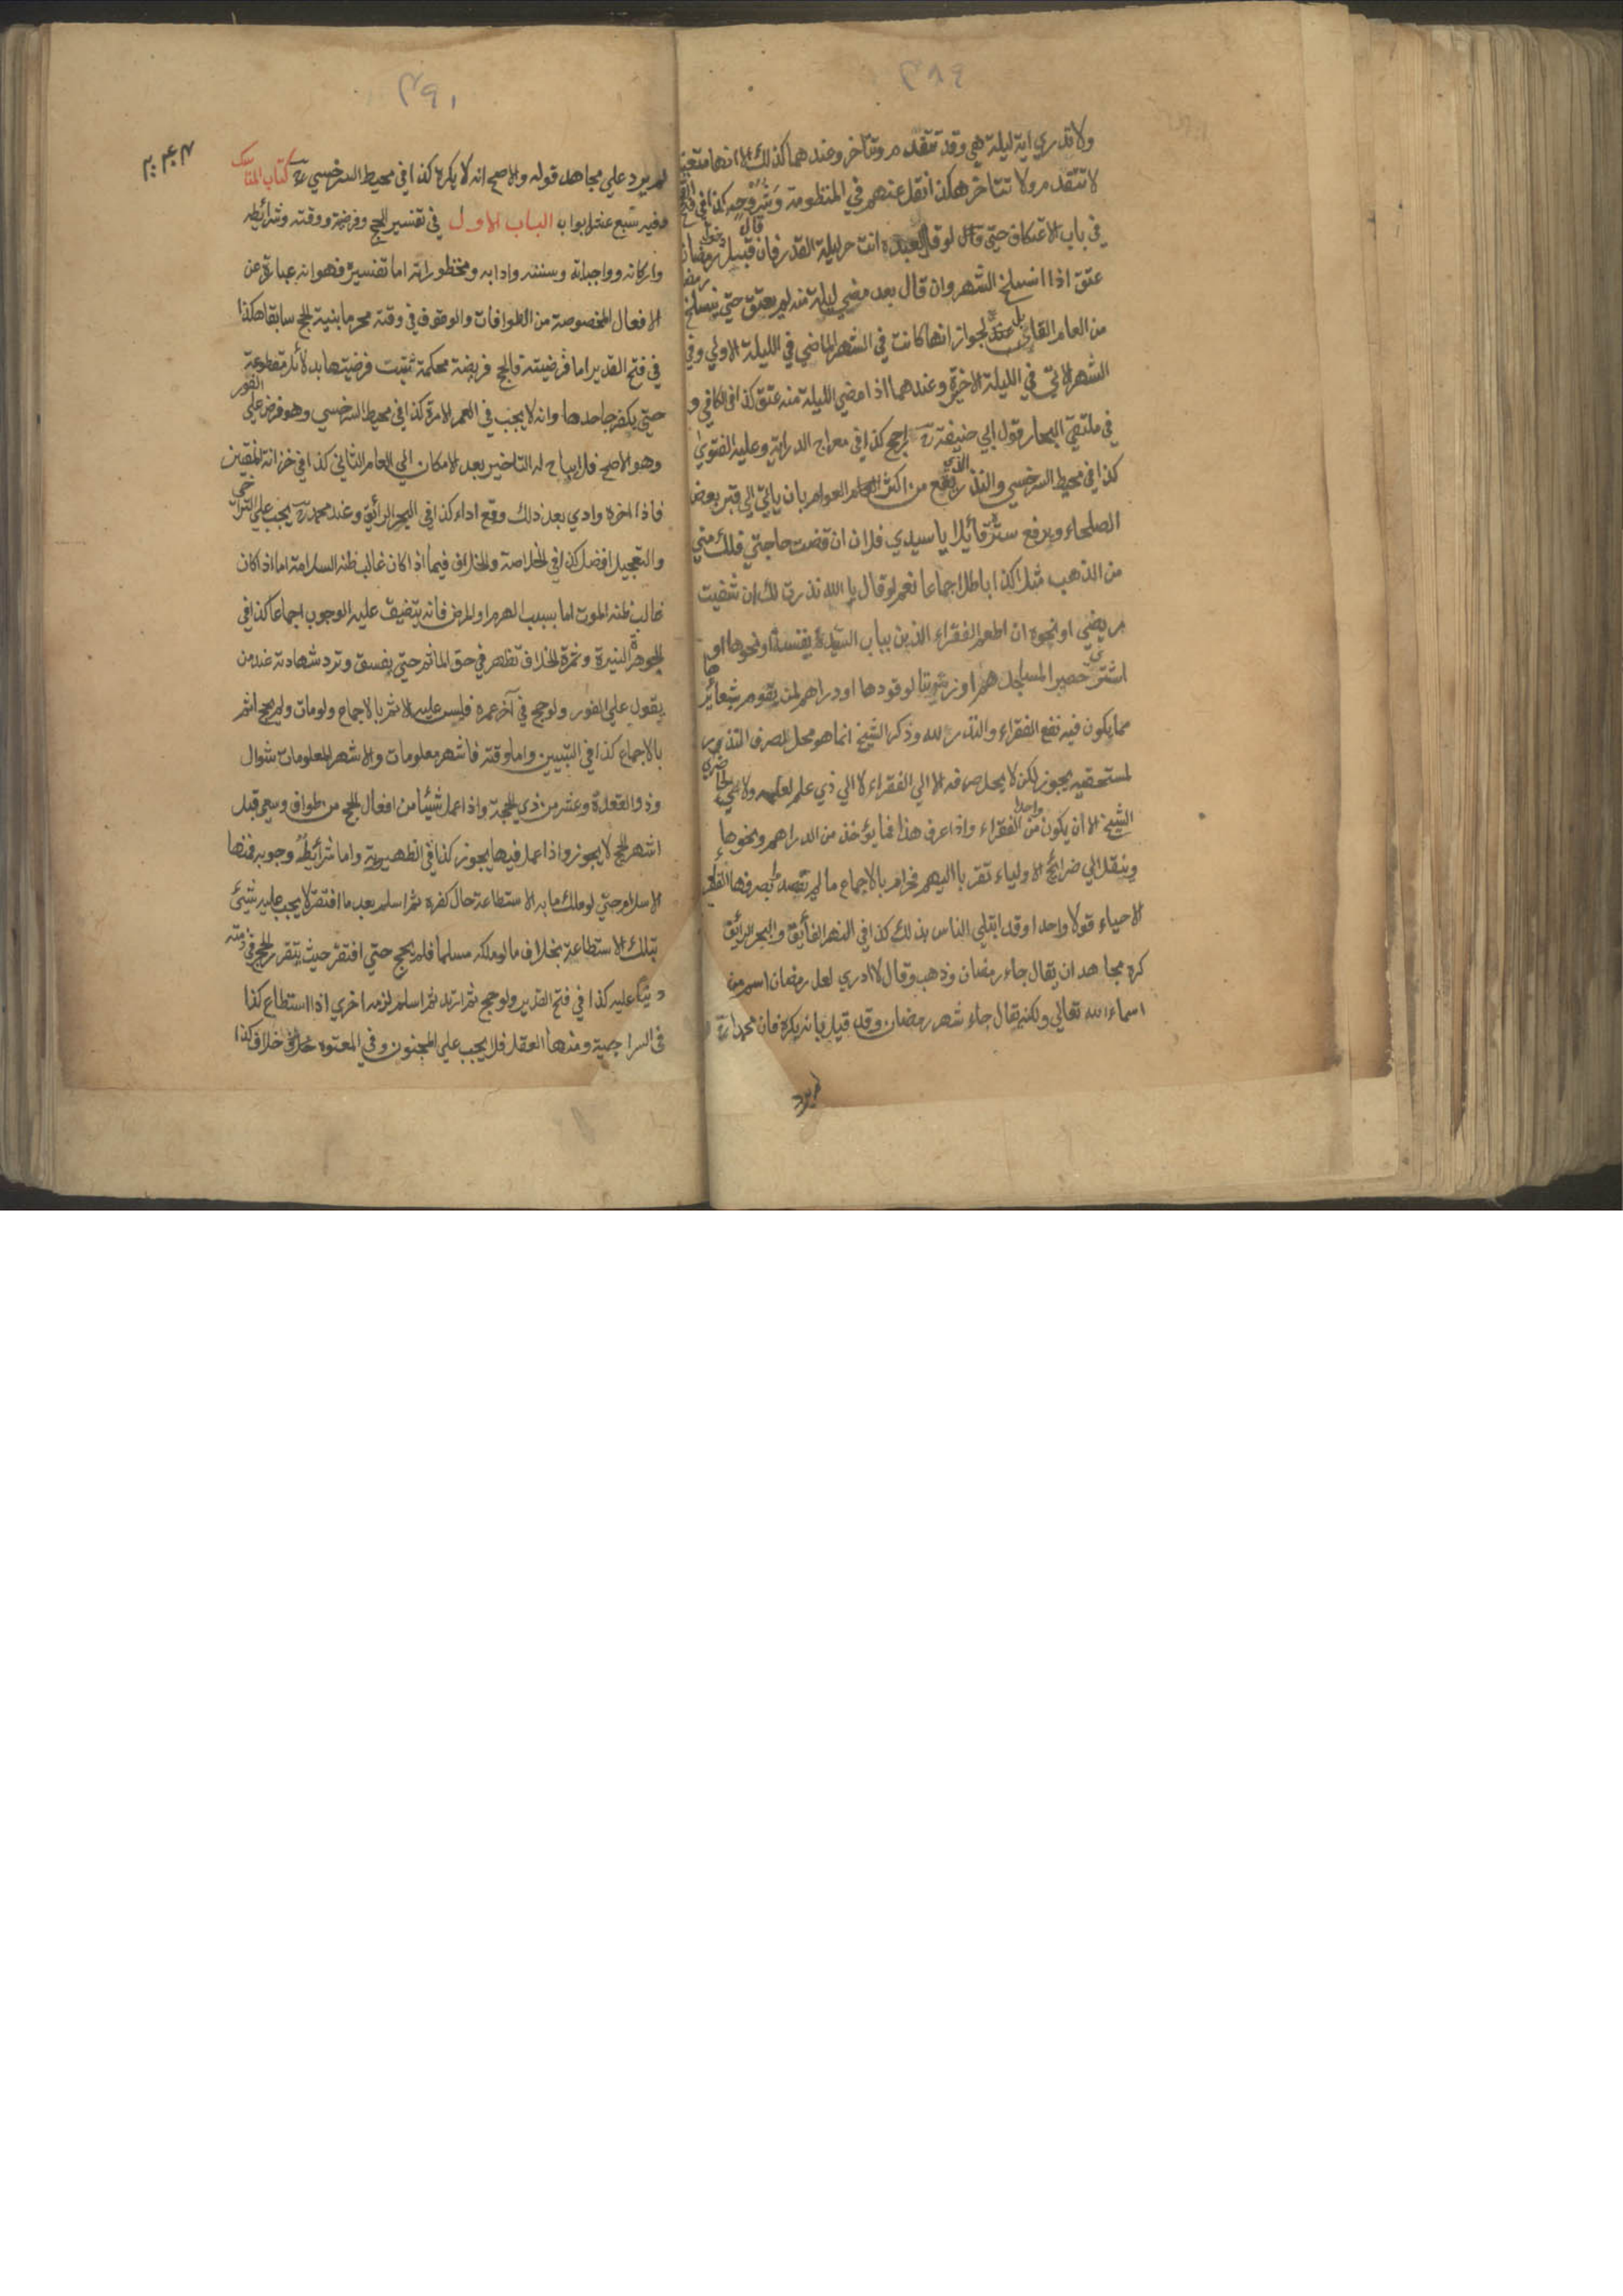 ٣٨٩
ولا تدري اية ليلة هي وقد تتقدم وتتأخر وعندهما كذلك الا انها متعينة
لا تتقدم ولا تتاخر هكذا نقل عنهم في المنظومة وشروحه كذا في فتح
في باب الاعتكاف حتى قال لو قال لعبده انت حر ليلة القدر فان قال قبيل دخول رمضان
عتق اذا انسلخ الشهر وان قال بعد مضي ليلة منه لم يعتق حتى ينسلخ رمضا
من العام القابل عنده لجواز انها كانت في الشهر الماضي في الليلة الاولي وفي
الشهر الاتي في الليلة الاخيرة وعندهما اذا مضي الليلة منه عتق كذا في الكافي و
في ملتقي البحار قول ابي حنيفة رح ارجح كذا في معراج الدراية وعليه الفتوي
كذا في محيط السرخسي والنذر الذي يقع من اكثر العوام بان ياتي الي قبر بعض
الصلحاء ويرفع ستره قائلا يا سيدي فلان ان قضت حاجتي فلك مني
من الذهب مثلا كذا باطل اجماعا نعم لو قال يا الله نذرت لك ان شفيت
مريضي او نحوه ان اطعم الفقراء الذين بباب السيدة نفيسة او نحوها او
اشتري حصيرا لمساجدهم او زيتا لوقودها او دراهم لمن يقوم بشعائرها
مما يكون فيه نفع الفقراء والنذر لله وذكر الشيخ انما هو محل لصرف النذر
لمستحقيه يجوز لكن لا يحل صرفه الا الي الفقراء لا الي ذي علم لعلمه ولا لحاضري
الشيخ الا ان يكون واحدا من الفقراء واذا عرف هذا فما يؤخذ من الدراهم ونحوها
وينقل الي ضرائح الاولياء تقربا اليهم فحرام بالاجماع ما لم يقصد بصرفها الفقراء
الاحياء قولا واحدا وقد ابتلي الناس بذلك كذا في النهر الفائق والبحر الرائق
كره مجاهد ان يقال جاء رمضان وذهب وقال لا ادري لعل رمضان اسم من
اسماء الله تعالي ولكن يقال جاء شهر رمضان وقد قيل بانه يكره فان محمدا رح
لم يرد
٣٩١
لم يرد علي مجاهد قوله والاصح انه لا يكره كذا في محيط السرخسي رح كتاب المناسك
وفيه سبع عشر ابواب الباب الاول في تفسير الحج وفرضيته ووقته وشرائطه
واركانه وواجباته وسننه وادابه ومحظوراته اما تفسيره فهو انه عبارة عن
الافعال المخصوصة من الطوافات والوقوف في وقته محرما بنية الحج سابقا هكذا
في فتح القدير اما فرضيته فالحج فريضة محكمة ثبتت فرضيتها بدلائل مقطوعة
حتي يكفر جاحدها وانه لا يجب في العمر الا مرة كذا في محيط السرخسي وهو فرض علي الفور
وهو الاصح فلا يباح له التاخير بعد الامكان الي العام الثاني كذا في خزانة المفتين
فاذا اخره وادي بعد ذلك وقع اداء كذا في البحر الرائق وعند محمد رح يجب علي التراخي
والتعجيل افضل كذا في الخلاصة والخلاف فيما اذا كان غالب ظنه السلامة اما اذا كان
غالب ظنه الموت اما بسبب الهرم او المرض فانه يتضيق عليه الوجوب اجماعا كذا في
الجوهرة النيرة وثمرة الخلاف تظهر في حق الماثم حتي يفسق وترد شهادته عند من
يقول علي الفور ولو حج في آخر عمره فليس عليه الاثم بالاجماع ولو مات ولم يحج اثم
بالاجماع كذا في التبيين واما وقته فاشهر معلومات والاشهر المعلومات شوال
وذو القعدة وعشر من ذي الحجة واذا عمل شيئا من افعال الحج من طواف وسعي قبل
اشهر الحج لا يجوز واذا عمل فيها يجوز كذا في الظهيرية واما شرائط وجوبه فمنها
الاسلام حتي لو ملك ما به الاستطاعة حال كفره ثم اسلم بعد ما افتقر لا يجب عليه شيئ
بتلك الاستطاعة بخلاف ما لو ملكه مسلما فلم يحج حتي افتقر حيث يتقرر الحج في ذمته
دينا عليه كذا في فتح القدير ولو حج ثم ارتد ثم اسلم لزمه اخري اذا استطاع كذا
في السراجية ومنها العقل فلا يجب علي المجنون وفي المعتوه خلاف كذا